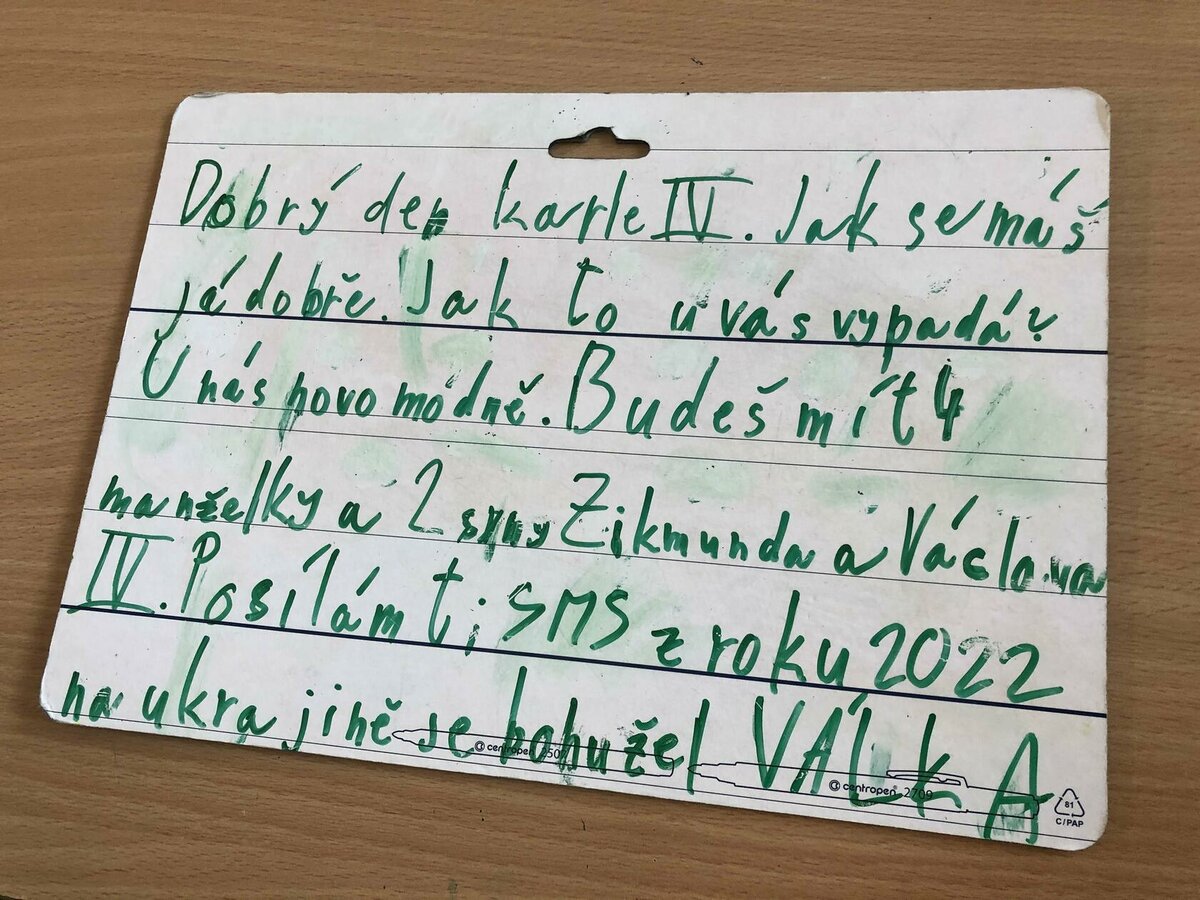 Dobrý den karle IV. Jak se máš
já dobře. Jak to u vás vypadá?
U nás novo módně. Budeš mít 4
manželky a 2 syny Zikmunda a Václava
IV. Posílám ti SMS z roku 2022
na ukra jině je bohužel VÁLKA
© centropen 2507
© centropen® 2709
81
C/PAP